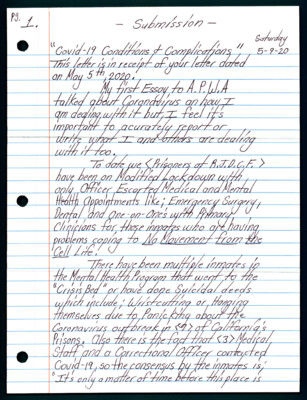 Pg. 1.
- Submission -
Saturday
5-9-20
"Covid-19 Conditions & Complications"
This letter is in receipt of your letter dated
on May 5th, 2020.
My first Essay to A.P.W.A
talked about Coronavirus an how I
am dealing with it but, I feel it's
important to acurately report or
write what I and others are dealing
with it too.
To date, we <Prisoners of R.J.D.C.F.>
have been on Modified Lockdown with
only Officer Escorted Medical and Mental
Health Appointments like; Emergency Surgery,
Dental, and One-on-One's with Primary
Clinicians for, those inmates who are having
problems coping to No Movement from the
Cell Life!
There have been multiple inmates in
the Mental Health Program that went to the
"Crisis Bed" or have done Suicidal deeds
which include; Wristcutting or, Hanging
themselves due to, Panicking about the
Coronavirus outbreak in <9> of California's
Prisons. Also there is the fact that <3> Medical
Staff and a Correctional Officer contracted
Covid-19, so the consensus by the inmates is;
"It's only a matter of time before this place is